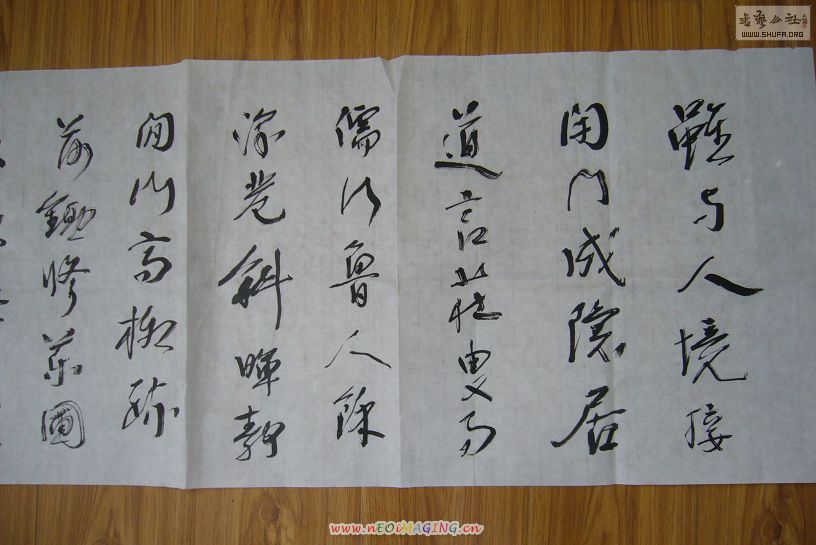 書藝公社
WWW.SHUFA.ORG
雖与人境接
閉門成隐居
道言莊叟事
儒行魯人餘
深巷斜暉静
閒门高柳疏
荷鋤修药圃
www.nEOiMAGING.cn